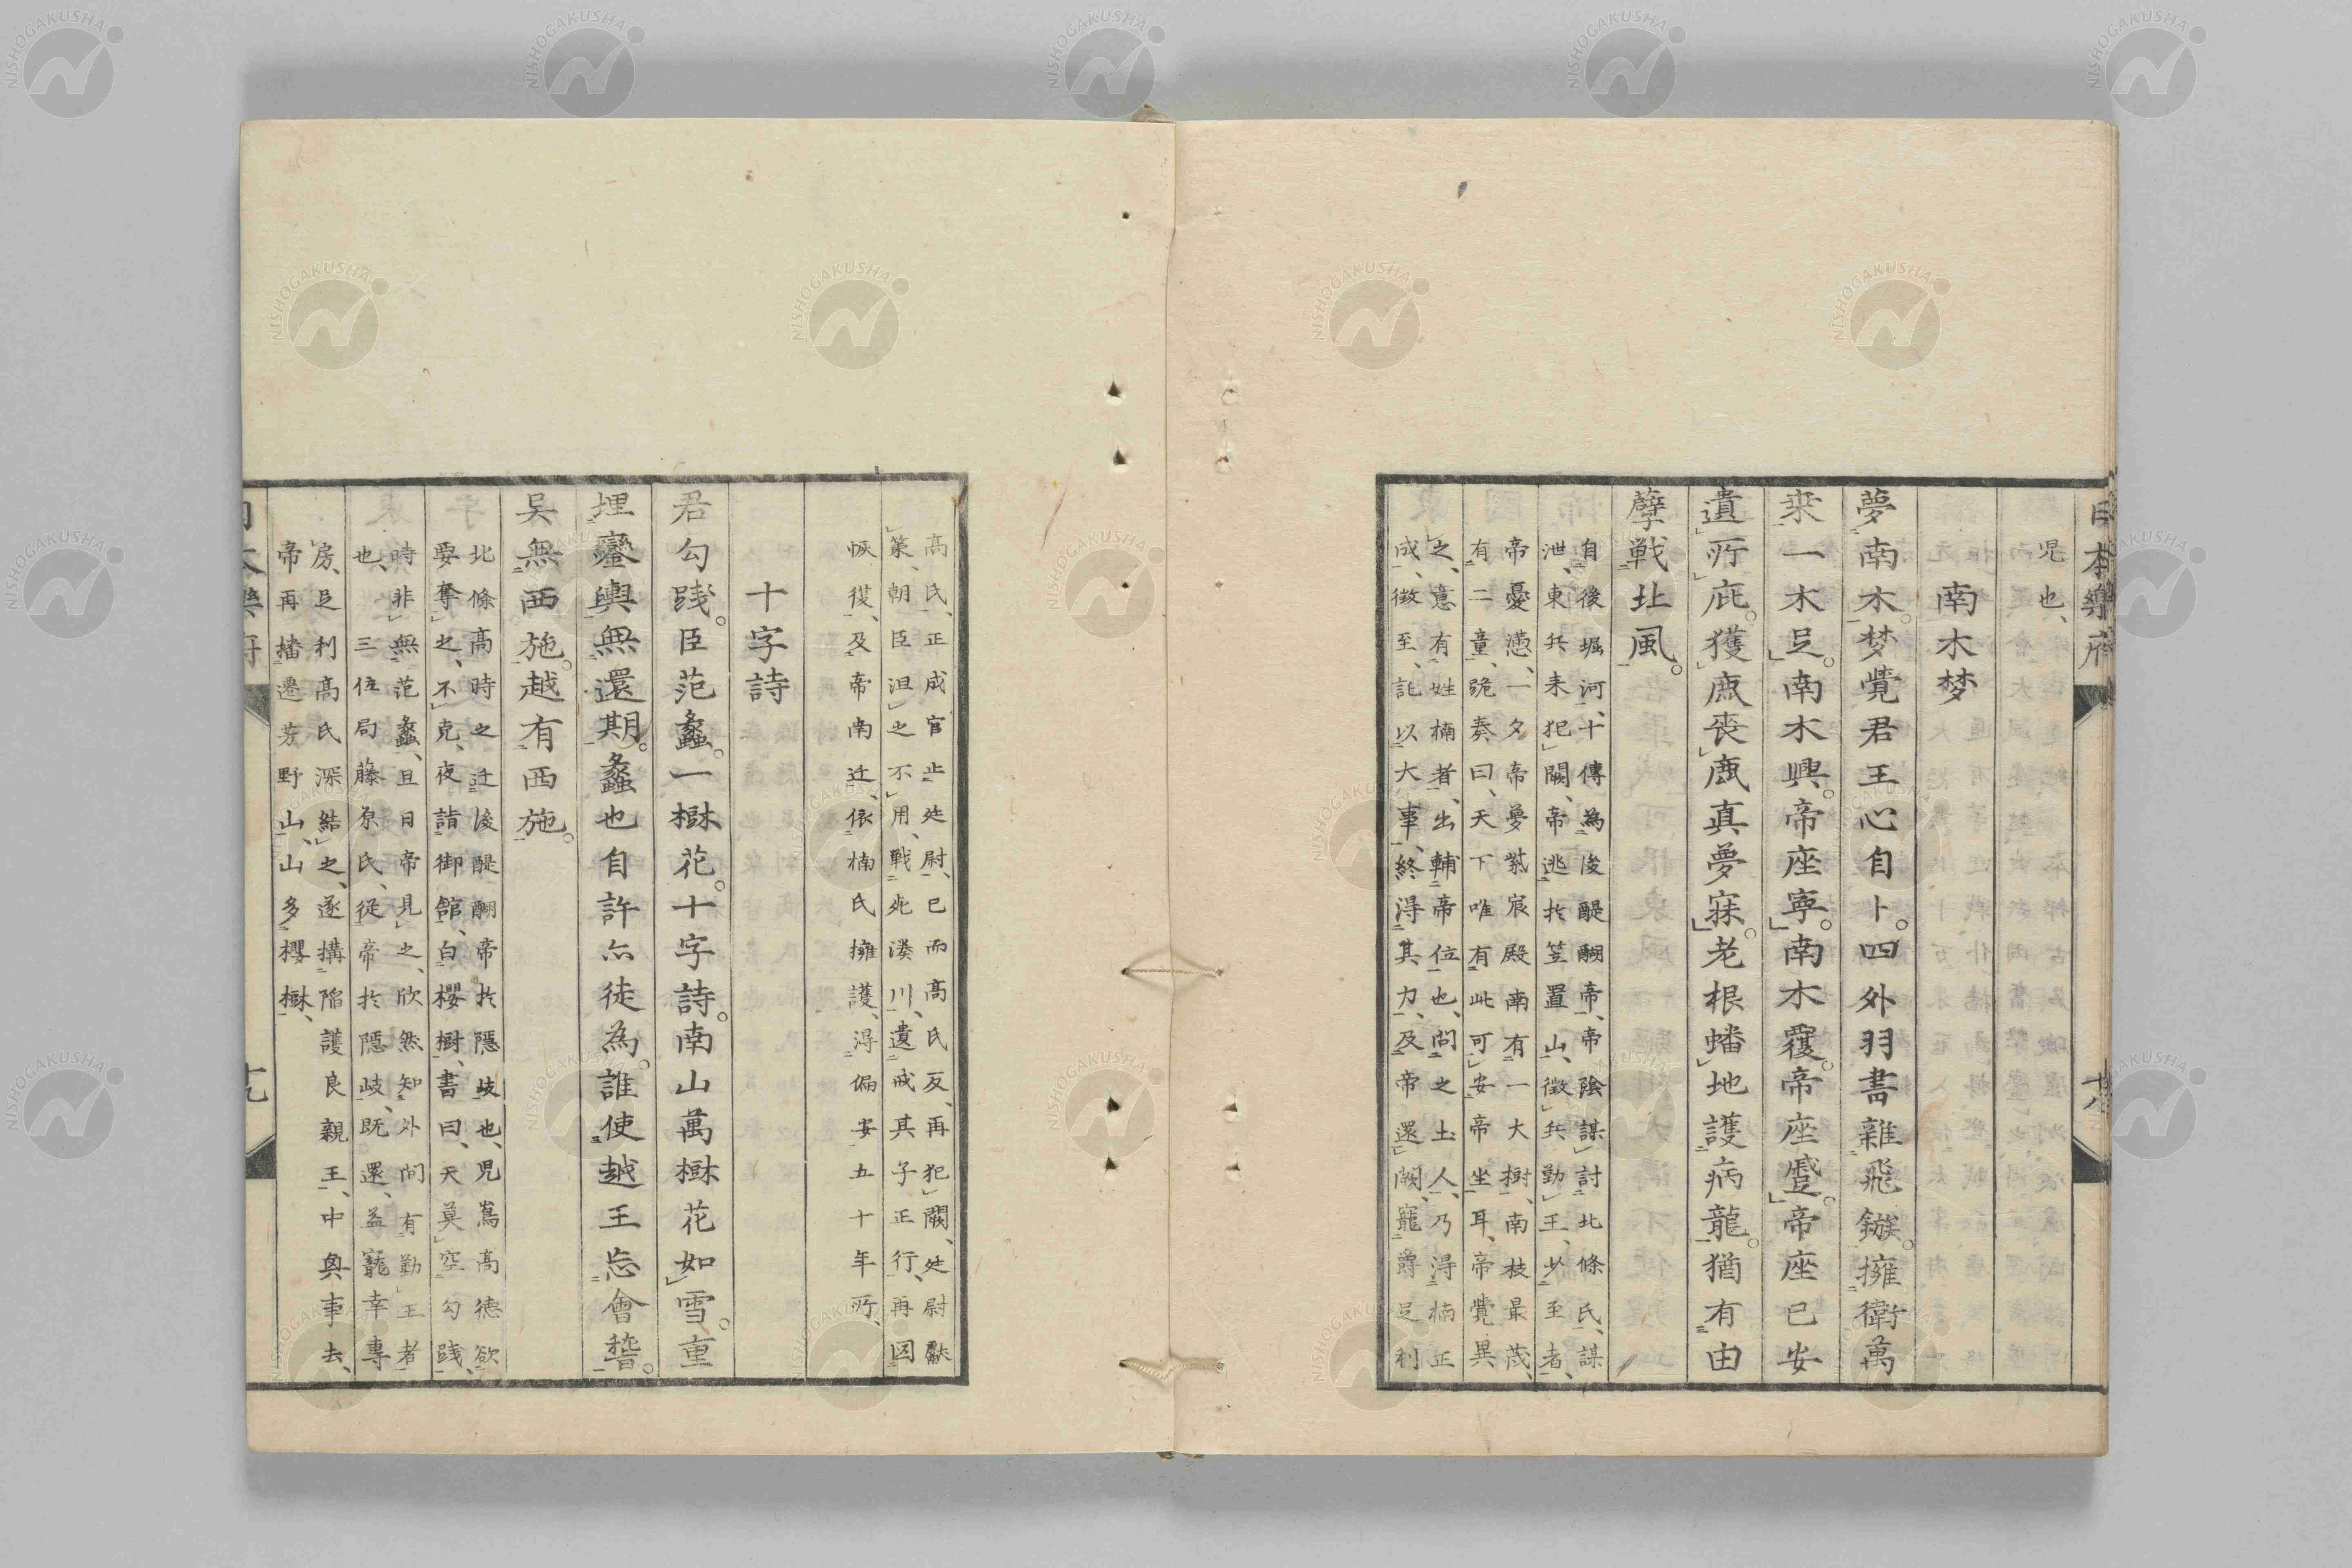 日本樂府
十八
児也、
南木梦
夢南木。梦覺君王心自卜。四外羽書雜飛鏃。擁衛萬
来一木足。南木興。帝座寧。南木覆。帝座蹙。帝座已安
遺所庇。獲鹿喪鹿真夢寐。老根蟠地護病龍。猶有由
孽戦北風。
自後堀河、十傳為後醍醐帝、帝陰謀討北條氏、謀
泄、東兵来犯闕、帝逃於笠置山、徴兵勤王、少至者、
帝憂懣、一夕帝夢紫宸殿南有一大樹、南枝最茂、
有二童、跪奏曰、天下唯有此可安帝坐耳、帝覺異
之、意有姓楠者、出輔帝位也、問之土人、乃得楠正
成、徴至、託以大事、終得其力、及帝還闕、寵爵足利
高氏、正成官止廷尉、已而高氏反、再犯闕、廷尉獻
策、朝臣沮之不用、戦死湊川、遺戒其子正行、再図
恢復、及帝南迁、依楠氏擁護、得偏安五十年所、
十字詩
君勾踐。臣范蠡。一樹花。十字詩。南山萬樹花如雪。重
埋鑾輿無還期。蠡也自許亦徒為。誰使越王忘會誓。
吳無西施。越有西施。
北條高時之迁後醍醐帝於隱岐也、児嶌高徳欲
要奪之、不克、夜詣御館、白櫻樹、書曰、天莫空勾踐、
時非無范蠡、旦日帝見之、欣然知外間有勤王者
也、三位局藤原氏、従帝於隱岐、既還、益寵幸專
房、足利高氏深結之、遂搆陥護良親王、中興事去、
帝再播遷芳野山、山多櫻樹、
日本樂府
十九
NISHOGAKUSHA